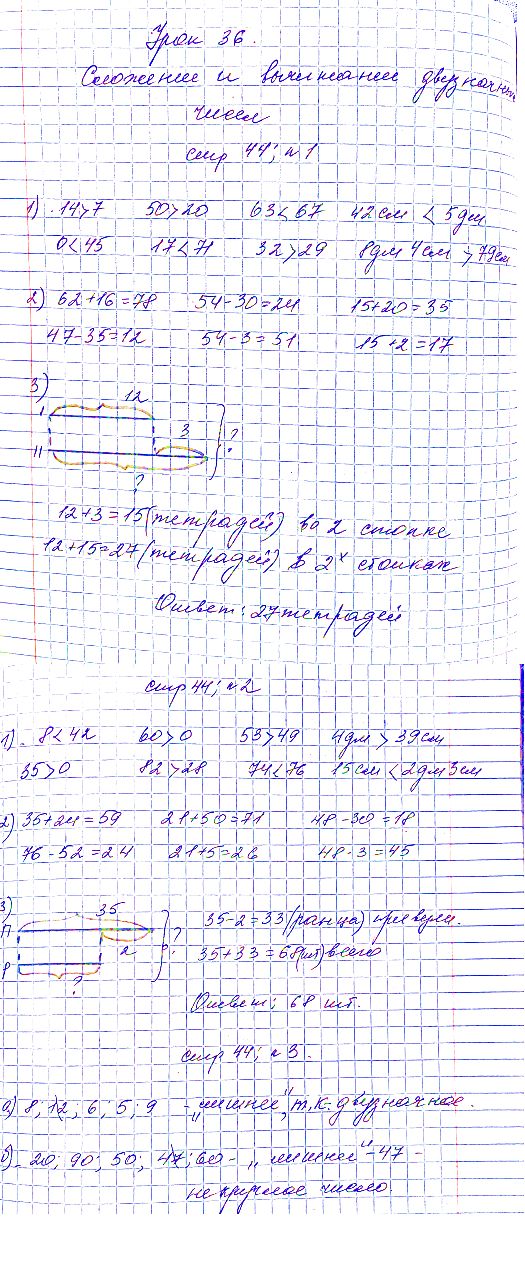 Урок 36.
Сложение и вычитание двузначных
чисел
стр 44; n 1
1) 14>7 50>20 63<67 42см < 5дм
0<45 17<71 32>29 8дм 4см > 79см
2) 62+16=78 54-30=24 15+20=35
47-35=12 54-3=51 15+2=17
3)
12
I
3
?
II
?
12+3=15(тетрадей) во 2 стопке
12+15=27(тетрадей) в 2х стопках
Ответ: 27тетрадей
стр 44; n 2
1) 8<42 60>0 53>49 4дм > 39см
35>0 82>28 74<76 15см < 2дм 3см
2) 35+24=59 21+50=71 48-30=18
76-52=24 21+5=26 48-3=45
3)
35
П
2
?
Р
?
35-2=33(ранца) привезли.
35+33=68(шт) всего
Ответ: 68 шт.
стр 44; n 3.
а) 8; 12, 6; 5; 9 - „лишнее", т.к. двузначное.
б) 20; 90; 50; 47; 60 - „лишнее" - 47 -
не круглое число